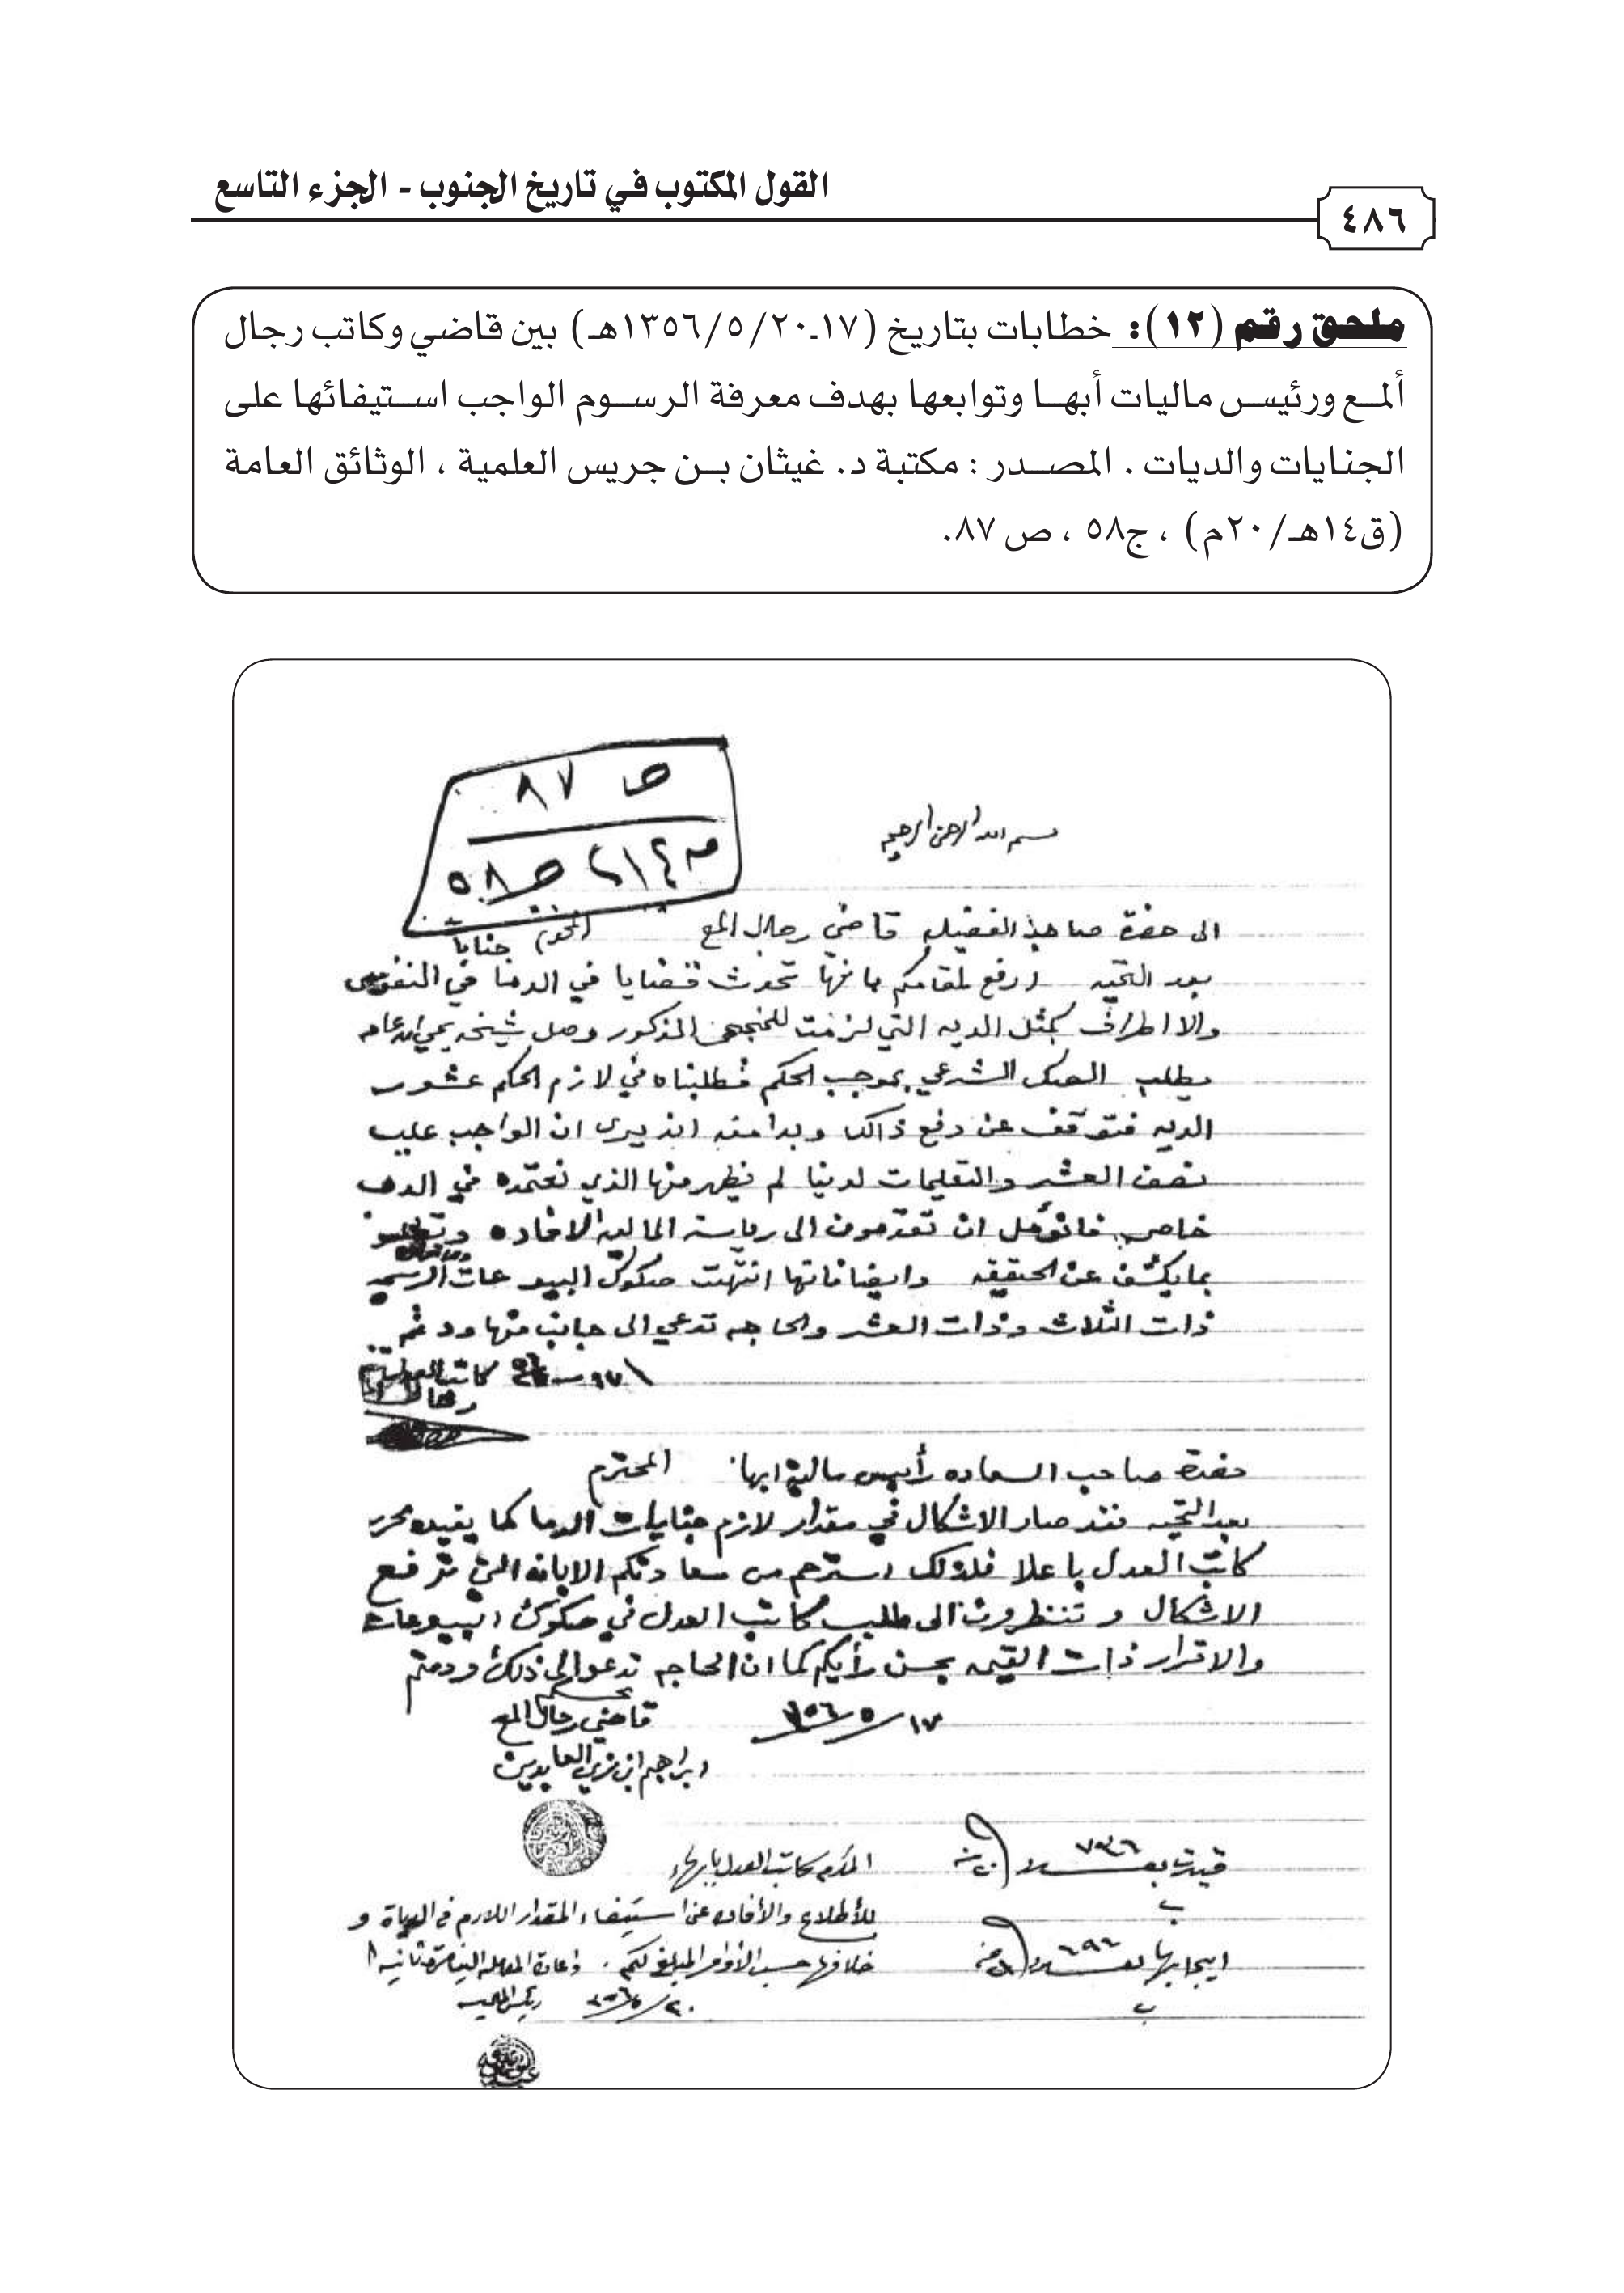 القول المكتوب في تاريخ الجنوب - الجزء التاسع
٤٨٦
ملحق رقم (١٢): خطابات بتاريخ (١٧ـ٢٠/٥/١٣٥٦هـ) بين قاضي وكاتب رجال
ألمع ورئيس ماليات أبها وتوابعها بهدف معرفة الرسوم الواجب استيفائها على
الجنايات والديات . المصدر : مكتبة د. غيثان بن جريس العلمية ، الوثائق العامة
(ق١٤هـ/٢٠م) ، ج٥٨ ، ص ٨٧.
ص ٨٧
٥٨
بسم الله الرحمن الرحيم
الى حضرة صاحب الفضيله قاضي رجال المع
بعد التحيه ارفع لمقامكم بانها تحدث قضايا في الدما في النفوس
والاطراف كمثل الديه التي لزمت المذكور وصل شيخه
يطلب الصك الشرعي بموجب الحكم فطلبناه في لازم الحكم عشور
الديه فتوقف عن دفع ذالك وبدا منه انه يرى ان الواجب عليه
نصف العشر والتعليمات لدينا لم نظهر منها الذي نعتمده في الدما
خاصه فانؤمل ان تقدمون الى رياسة الماليه الافاده
بما يكشف عن الحقيقه وايضا فانها انتهت صكوك البيوعات الرسميه
ذات الثلاث وذات العشر والحاجه تدعي الى جانب منها ودمتم
كاتب العدل
حضرة صاحب السعاده رأيس مالية ابها المحترم
بعد التحيه فقد صار الاشكال في مقدار لازم جنايات الدما كما يفيده محرر
كاتب العدل باعلا فلذلك استرحم من سعادتكم الابانه التي ترفع
الاشكال وتنظرون الى طلب كاتب العدل في صكوك البيوعات
والاقرار ذات القيمه بحسن رأيكم كما ان الحاجه تدعو الى ذلك ودمتم
١٧/٥/٣٥٦ قاضي رجال المع
ابراهيم ابن زين العابدين
قيدت بعدد ٧٣٦
المكرم كاتب العدل
للأطلاع والأفاده عن استيفاء المقدار اللازم في
خلافها حسب الأوامر المبلغه لكم
ايجابها بعدد ٦٩٦
٢٠/٥/٣٥٦ رئيس الماليه